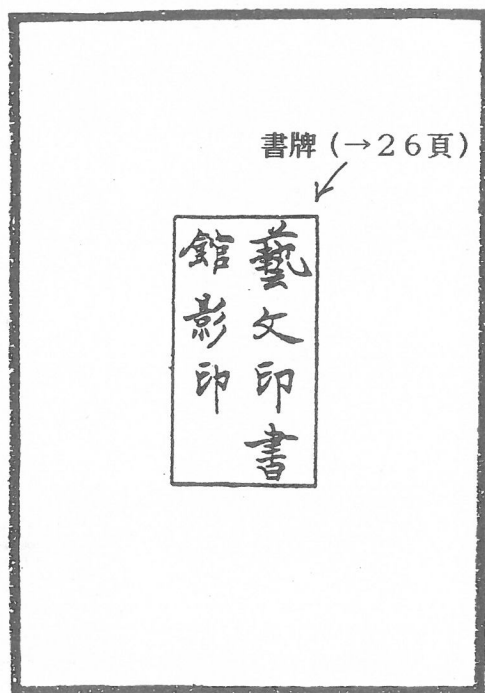 書牌(→26頁)
藝文印書
館影印